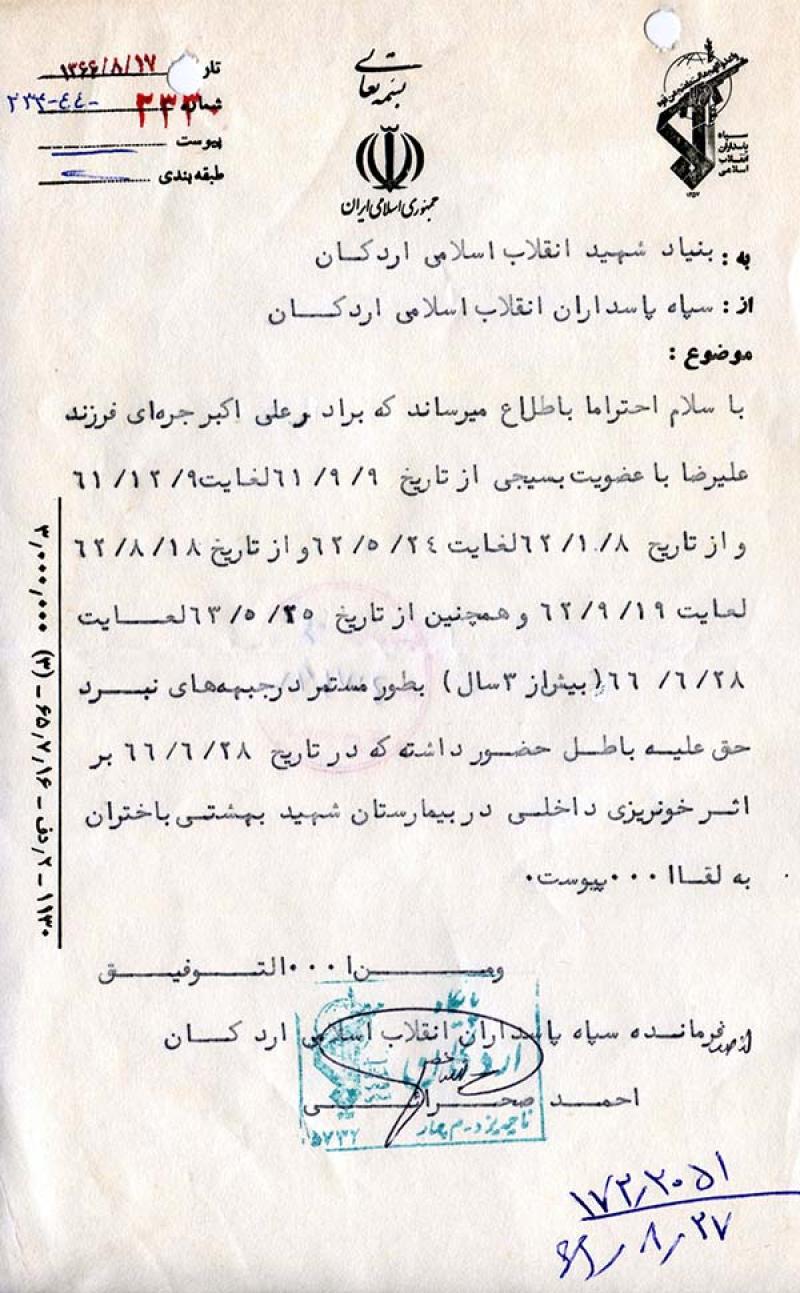 بسمه تعالی
جمهوری اسلامی ایران
سپاه
پاسداران
انقلاب
اسلامی
تاریخ ۱۳۶۶/۸/۱۷
شماره
پیوست
طبقه بندی
به : بنیاد شهید انقلاب اسلامی اردکان
از : سپاه پاسداران انقلاب اسلامی اردکان
موضوع :
با سلام احتراما باطلاع میرساند که برادر علی اکبر جره‌ای فرزند
علیرضا با عضویت بسیجی از تاریخ ۶۱/۹/۹ لغایت ۶۱/۱۲/۹
و از تاریخ ۶۲/۱/۸ لغایت ۶۲/۵/۲۴ و از تاریخ ۶۲/۸/۱۸
لغایت ۶۲/۹/۱۹ و همچنین از تاریخ ۶۳/۵/۲۵ لغایت
۶۶/۶/۲۸ (بیش از ۳ سال) بطور مستمر در جبهه‌های نبرد
حق علیه باطل حضور داشته که در تاریخ ۶۶/۶/۲۸ بر
اثر خونریزی داخلی در بیمارستان شهید بهشتی باختران
به لقاا ۰۰۰ پیوست.
ومن ا ۰۰۰ التوفیق
فرمانده سپاه پاسداران انقلاب اسلامی اردکان
احمد صحرائی
۵۷۳۲
۱۷۲,۲۰۵۱
۶۶,۸,۲۷
۱۱۹۳۰ – ۲ دف – ۶۵,۷,۱۶ – (۳) ۳,۰۰۰,۰۰۰